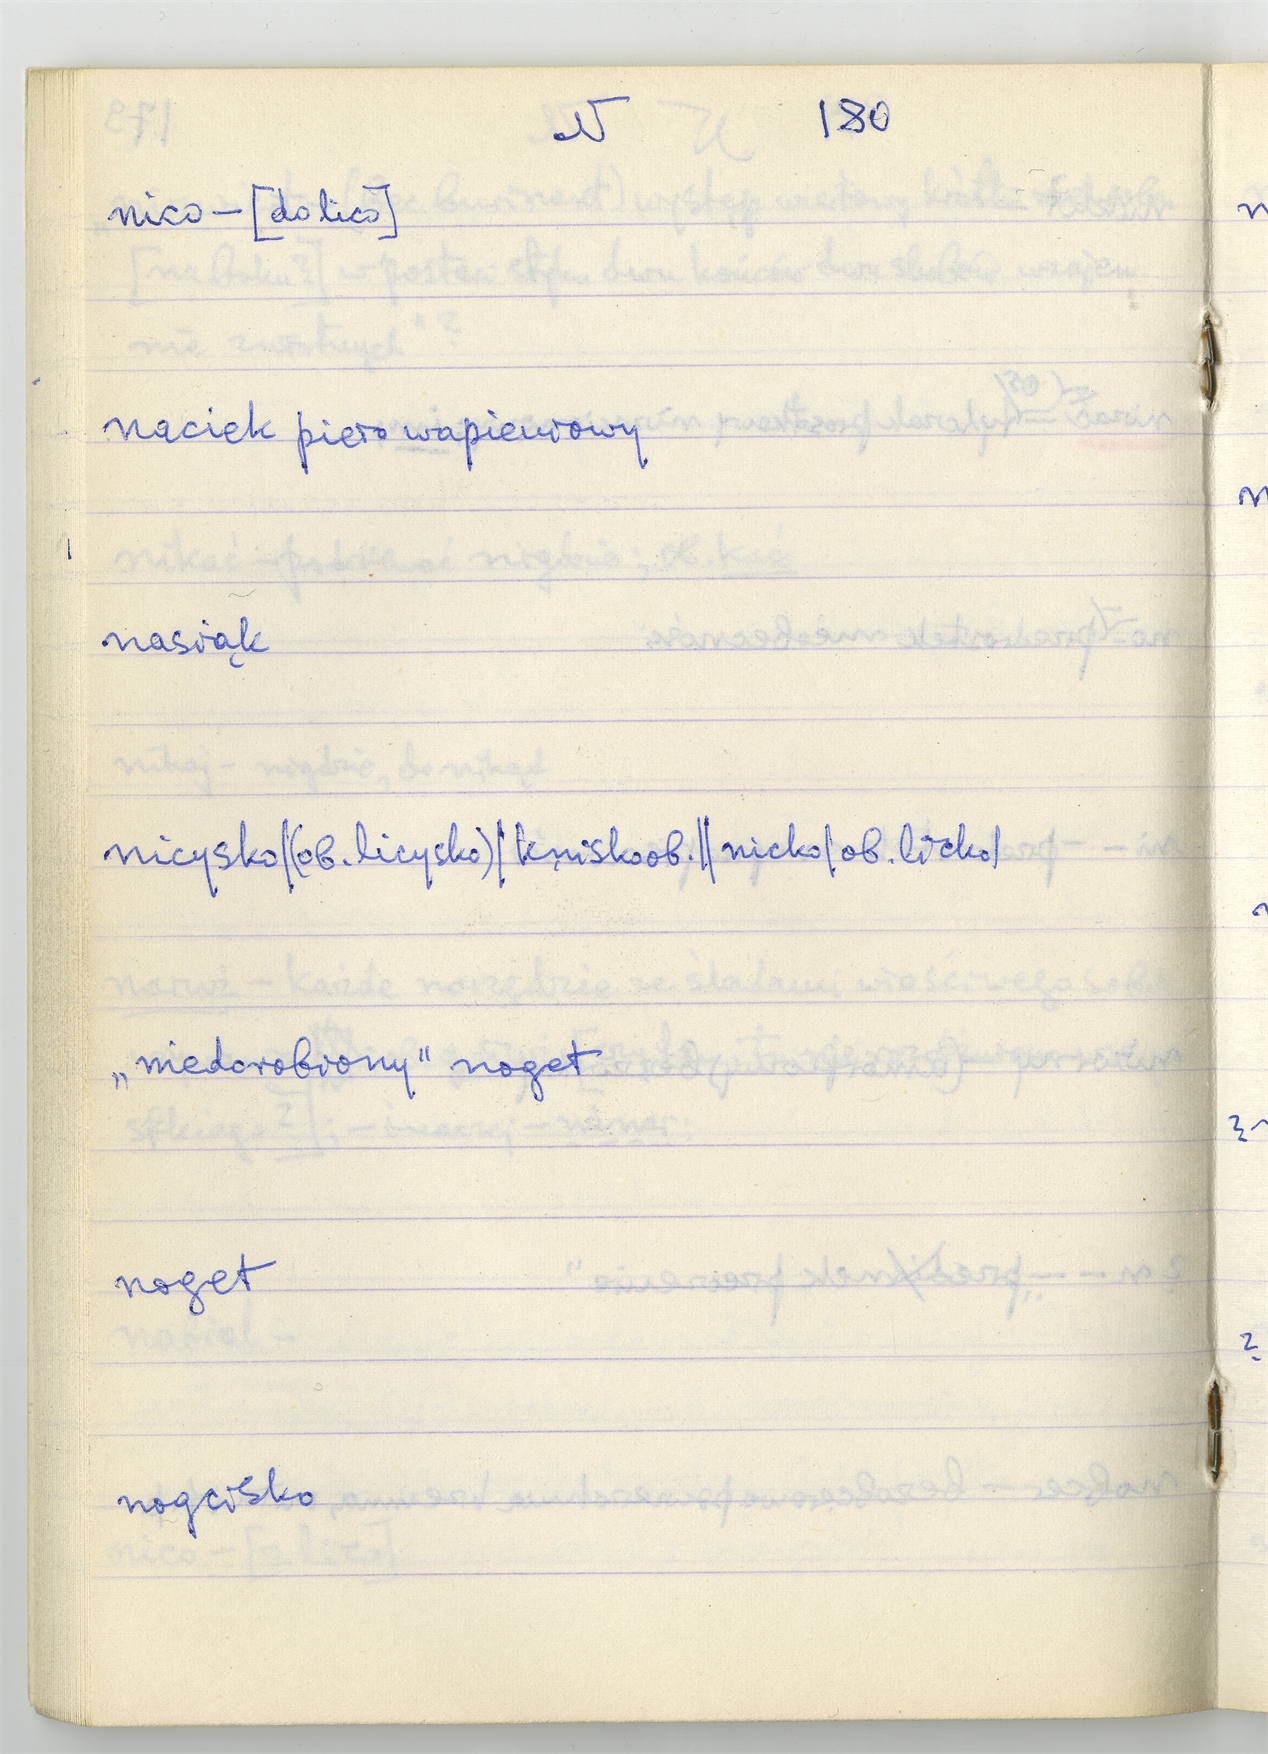 N 180
nico – [do lico]
naciek piero wapieniowy
nasiąk
nicysko/(ob. licysko)/kniskoob.// nicko/ob. licko/
„niedorobiony" noget
noget
nogcisko